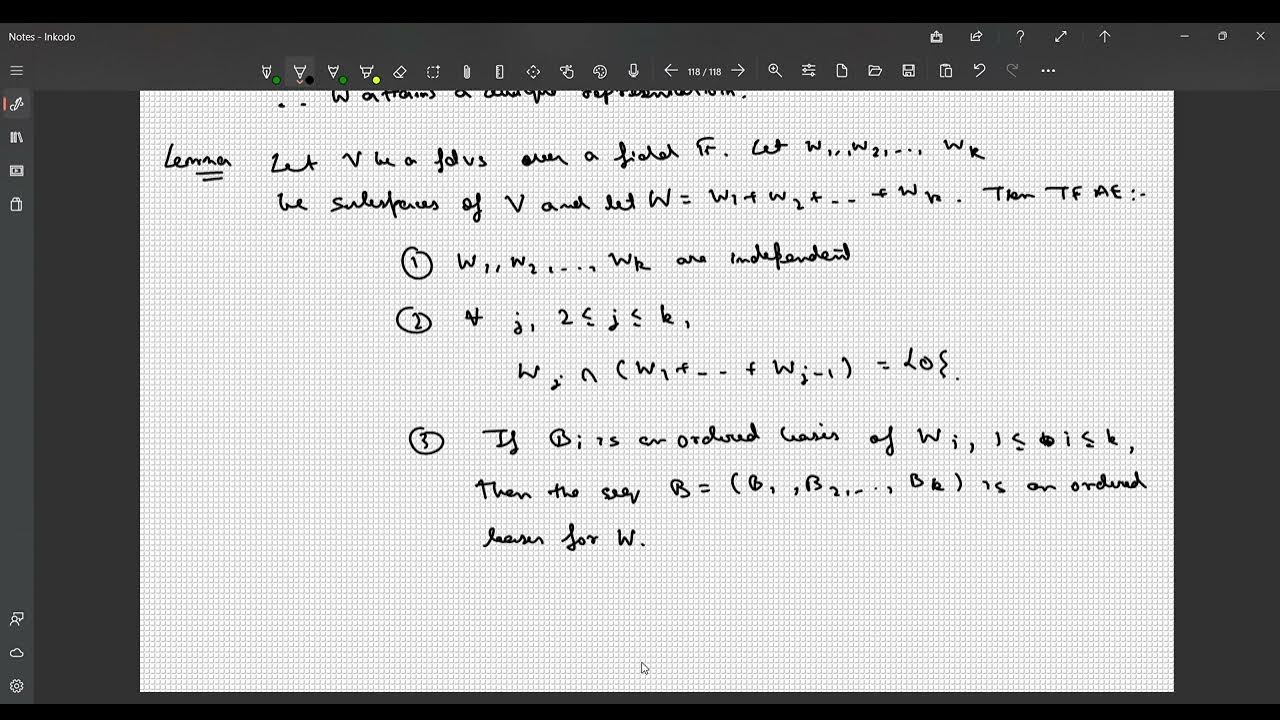 Notes - Inkodo
118 / 118
∴ W attains a unique representation.
Lemma Let V be a fdvs over a field F. Let W₁, W₂, ..., Wk
be subspaces of V and let W = W₁ + W₂ + -- + Wk. Then TFAE:-
① W₁, W₂, ..., Wk are independent
② ∀ j, 2 ≤ j ≤ k,
Wj ∩ (W₁ + --- + Wj-1) = {0}.
③ If Bi is an ordered basis of Wi, 1 ≤ i ≤ k,
then the seq B = (B₁, B₂, ..., Bk) is an ordered
basis for W.